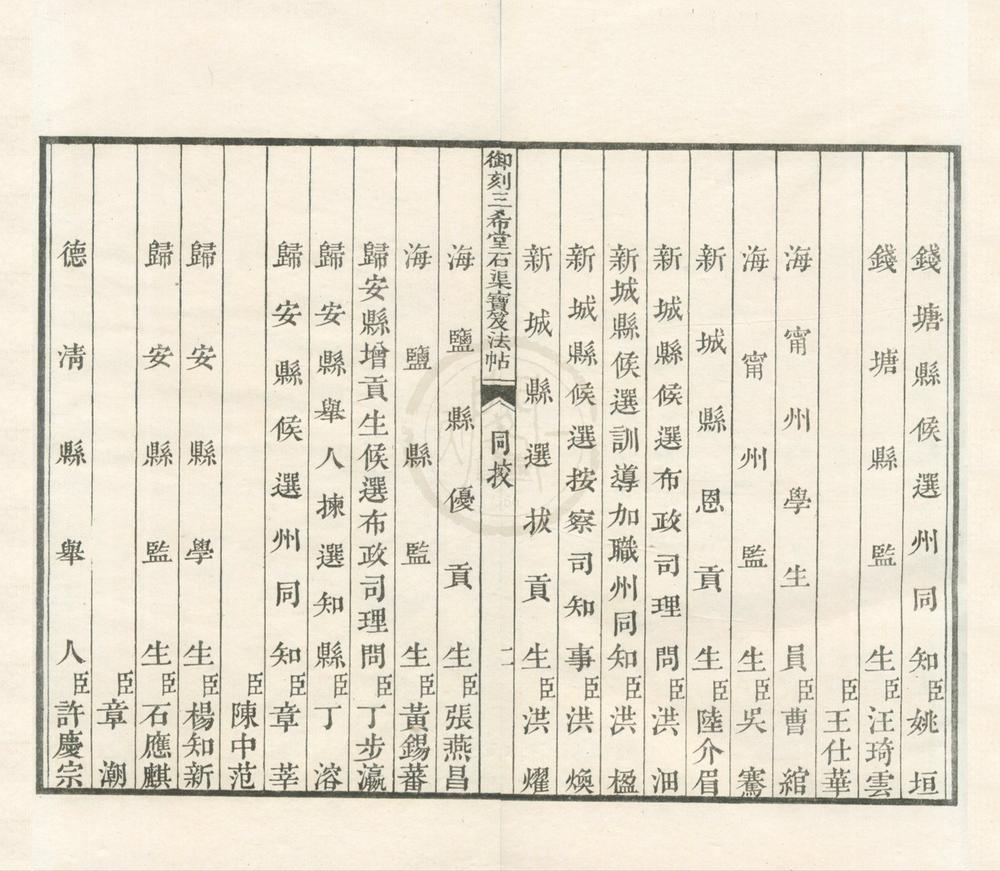 錢塘縣候選州同知臣姚垣
錢塘縣監生臣汪琦雲
臣王仕華
海甯州學生員臣曹綰
海甯州監生臣吳騫
新城縣恩貢生臣陸介眉
新城縣候選布政司理問臣洪沺
新城縣候選訓導加職州同知臣洪楹
新城縣候選按察司知事臣洪煥
新城縣選拔貢生臣洪燿
御刻三希堂石渠寶笈法帖 同挍 二
海鹽縣優貢生臣張燕昌
海鹽縣監生臣黃錫蕃
歸安縣增貢生候選布政司理問臣丁步瀛
歸安縣舉人揀選知縣臣丁溶
歸安縣候選州同知臣章莘
臣陳中范
歸安縣學生臣楊知新
歸安縣監生臣石應麒
臣章潮
德清縣舉人臣許慶宗